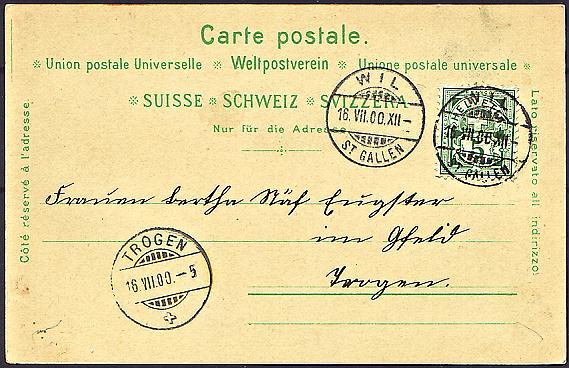 Carte postale.
* Union postale Universelle * Weltpostverein * Unione postale universale *
* SUISSE * SCHWEIZ * SVIZZERA
Nur für die Adresse.
Côté réservé à l'adresse.
Lato riservato all indirizzo.
WIL
16.VII.00.XII-
ST GALLEN
WIL
HELVETIA
16.VII.00.XII-
5
ST GALLEN
Frauen bertha Näf Eugster
im Gfeld
Trogen.
TROGEN
16.VII.00.-5